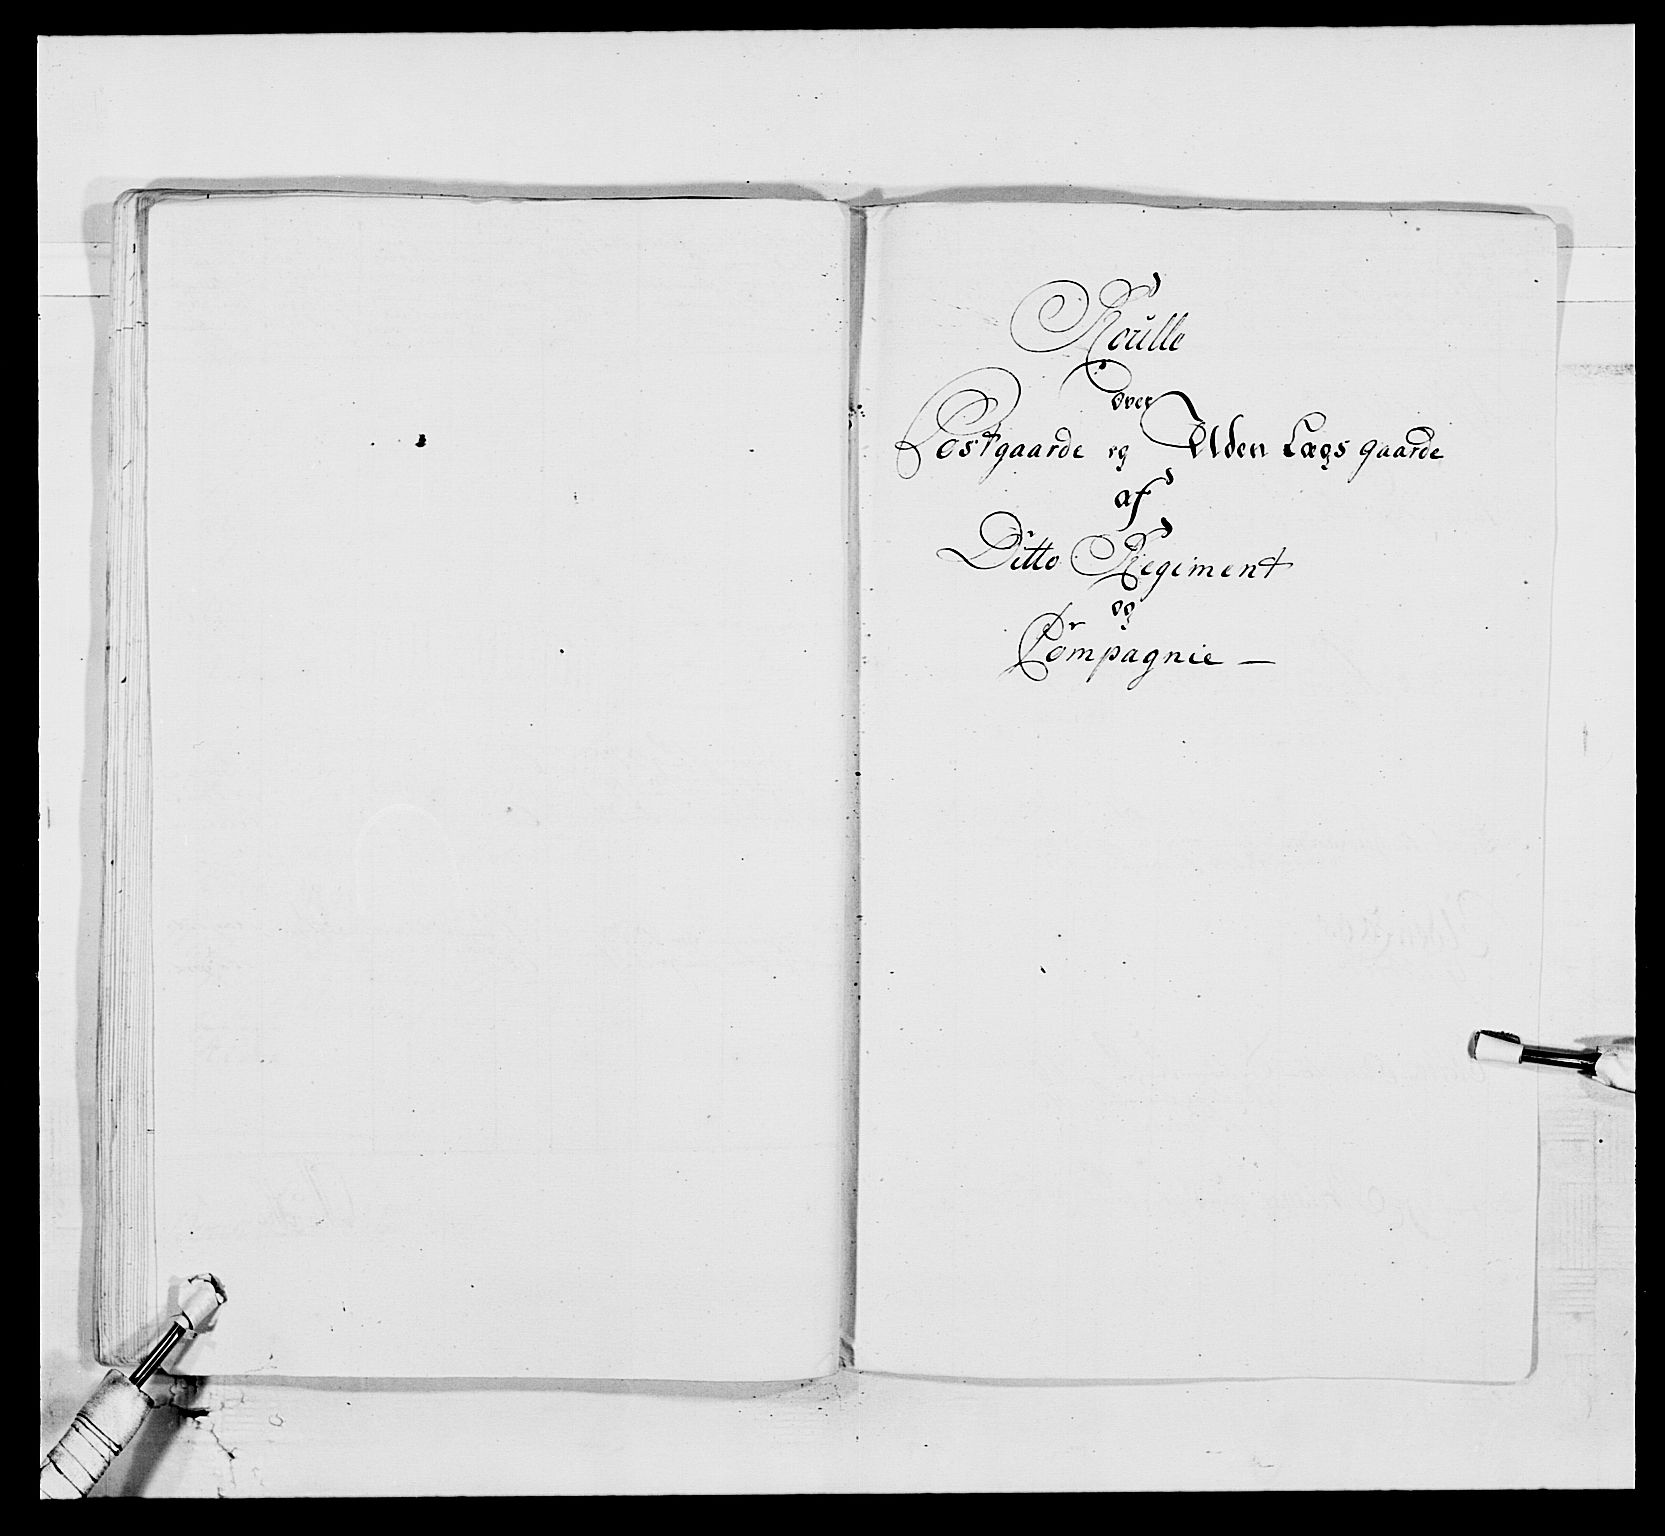 Roulle
over
Postgaarde og Uden Lægs gaarde
af
Ditto Regiment
og
Compagnie —